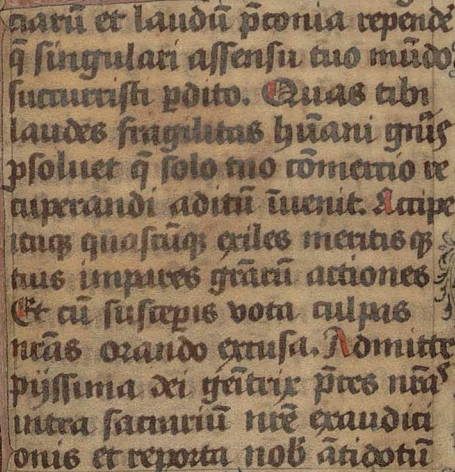 ciarū et laudū p̄conia repende
q̄ singulari assensu tuo mūdo
succurristi ꝑdito. Quas tibi
laudes fragilitas hūani gn̄is
ꝑsoluet q̄ solo tuo cōmercio re
cuperandi aditū īuenit. Accipe
itaqꝫ quascūqꝫ exiles meritisqꝫ
tuis impares gr̄arū actiones
Et cū susceꝑis vota culpas
nr̄as orando excusa. Admitte
pijssima dei geītrix p̄ces nr̄as
intra sacrariū nr̄e exauditi
onis et reporta nob̄ ātidotū